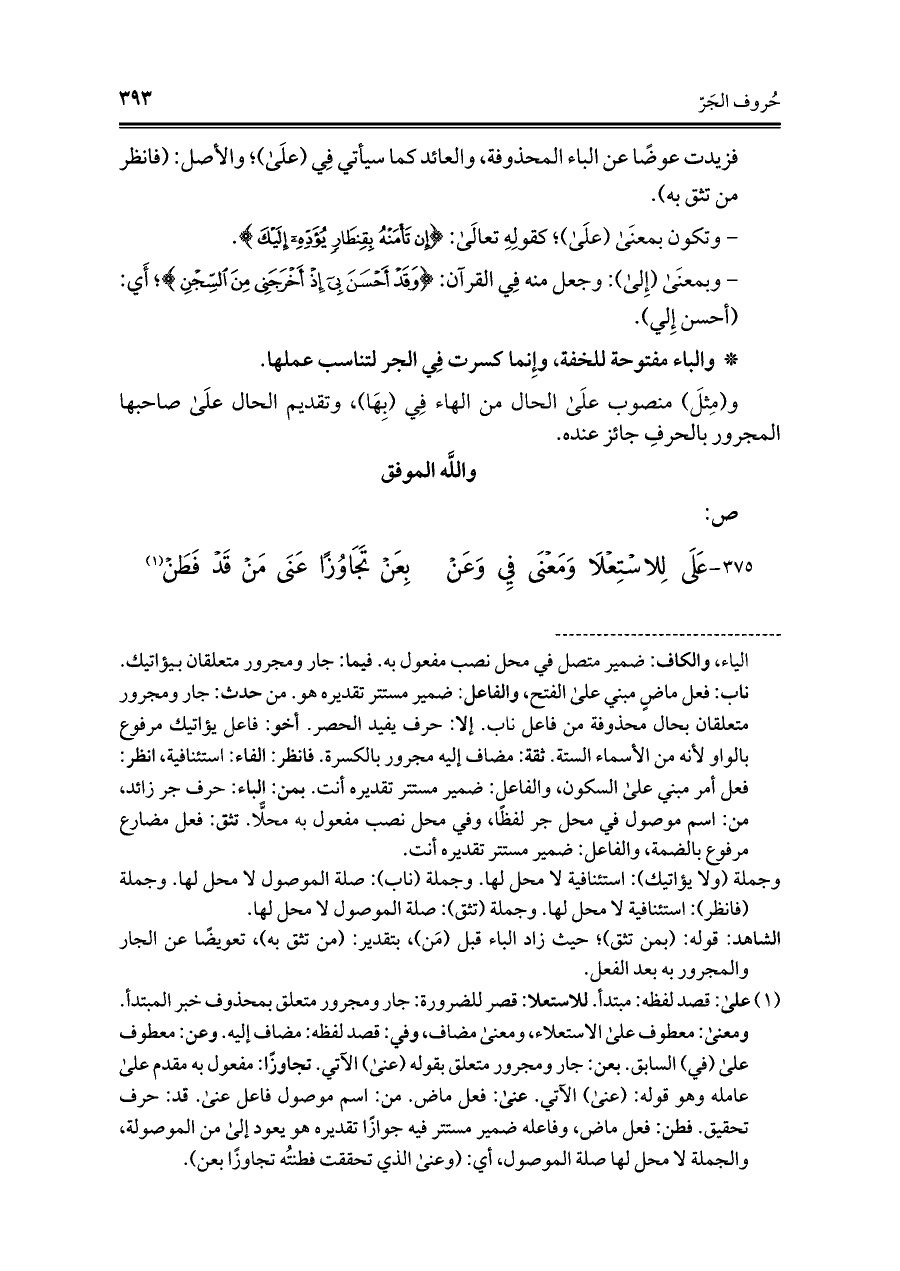 حُروف الجَرّ ٣٩٣
فزيدت عوضًا عن الباء المحذوفة، والعائد كما سيأتي فِي (علَىٰ)؛ والأصل: (فانظر
من تثق به).
– وتكون بمعنَىٰ (علَىٰ)؛ كقولِهِ تعالَىٰ: ﴿إِن تَأْمَنْهُ بِقِنطَارٍ يُؤَدِّهِۦٓ إِلَيْكَ﴾.
– وبمعنَىٰ (إِلىٰ): وجعل منه فِي القرآن: ﴿وَقَدْ أَحْسَنَ بِىٓ إِذْ أَخْرَجَنِى مِنَ ٱلسِّجْنِ﴾؛ أَي:
(أحسن إِلي).
* والباء مفتوحة للخفة، وإِنما كسرت فِي الجر لتناسب عملها.
و(مِثلَ) منصوب علَىٰ الحال من الهاء فِي (بِهَا)، وتقديم الحال علَىٰ صاحبها
المجرور بالحرفِ جائز عنده.
واللَّه الموفق
ص:
٣٧٥-عَلَى لِلاسْتِعْلَا وَمَعْنَى فِي وَعَنْ بِعَنْ تَجَاوُزًا عَنَى مَنْ قَدْ فَطَنْ(١)
الياء، والكاف: ضمير متصل في محل نصب مفعول به. فيما: جار ومجرور متعلقان بـيؤاتيك.
ناب: فعل ماضٍ مبني علىٰ الفتح، والفاعل: ضمير مستتر تقديره هو. من حدث: جار ومجرور
متعلقان بحال محذوفة من فاعل ناب. إلا: حرف يفيد الحصر. أخو: فاعل يؤاتيك مرفوع
بالواو لأنه من الأسماء الستة. ثقة: مضاف إليه مجرور بالكسرة. فانظر: الفاء: استئنافية، انظر:
فعل أمر مبني علىٰ السكون، والفاعل: ضمير مستتر تقديره أنت. بمن: الباء: حرف جر زائد،
من: اسم موصول في محل جر لفظًا، وفي محل نصب مفعول به محلًّا. تثق: فعل مضارع
مرفوع بالضمة، والفاعل: ضمير مستتر تقديره أنت.
وجملة (ولا يؤاتيك): استئنافية لا محل لها. وجملة (ناب): صلة الموصول لا محل لها. وجملة
(فانظر): استئنافية لا محل لها. وجملة (تثق): صلة الموصول لا محل لها.
الشاهد: قوله: (بمن تثق)؛ حيث زاد الباء قبل (مَن)، بتقدير: (من تثق به)، تعويضًا عن الجار
والمجرور به بعد الفعل.
(١) علىٰ: قصد لفظه: مبتدأ. للاستعلا: قصر للضرورة: جار ومجرور متعلق بمحذوف خبر المبتدأ.
ومعنىٰ: معطوف علىٰ الاستعلاء، ومعنىٰ مضاف، وفي: قصد لفظه: مضاف إليه. وعن: معطوف
علىٰ (في) السابق. بعن: جار ومجرور متعلق بقوله (عنىٰ) الآتي. تجاوزًا: مفعول به مقدم علىٰ
عامله وهو قوله: (عنىٰ) الآتي. عنىٰ: فعل ماض. من: اسم موصول فاعل عنىٰ. قد: حرف
تحقيق. فطن: فعل ماض، وفاعله ضمير مستتر فيه جوازًا تقديره هو يعود إلىٰ من الموصولة،
والجملة لا محل لها صلة الموصول، أي: (وعنىٰ الذي تحققت فطنتُه تجاوزًا بعن).